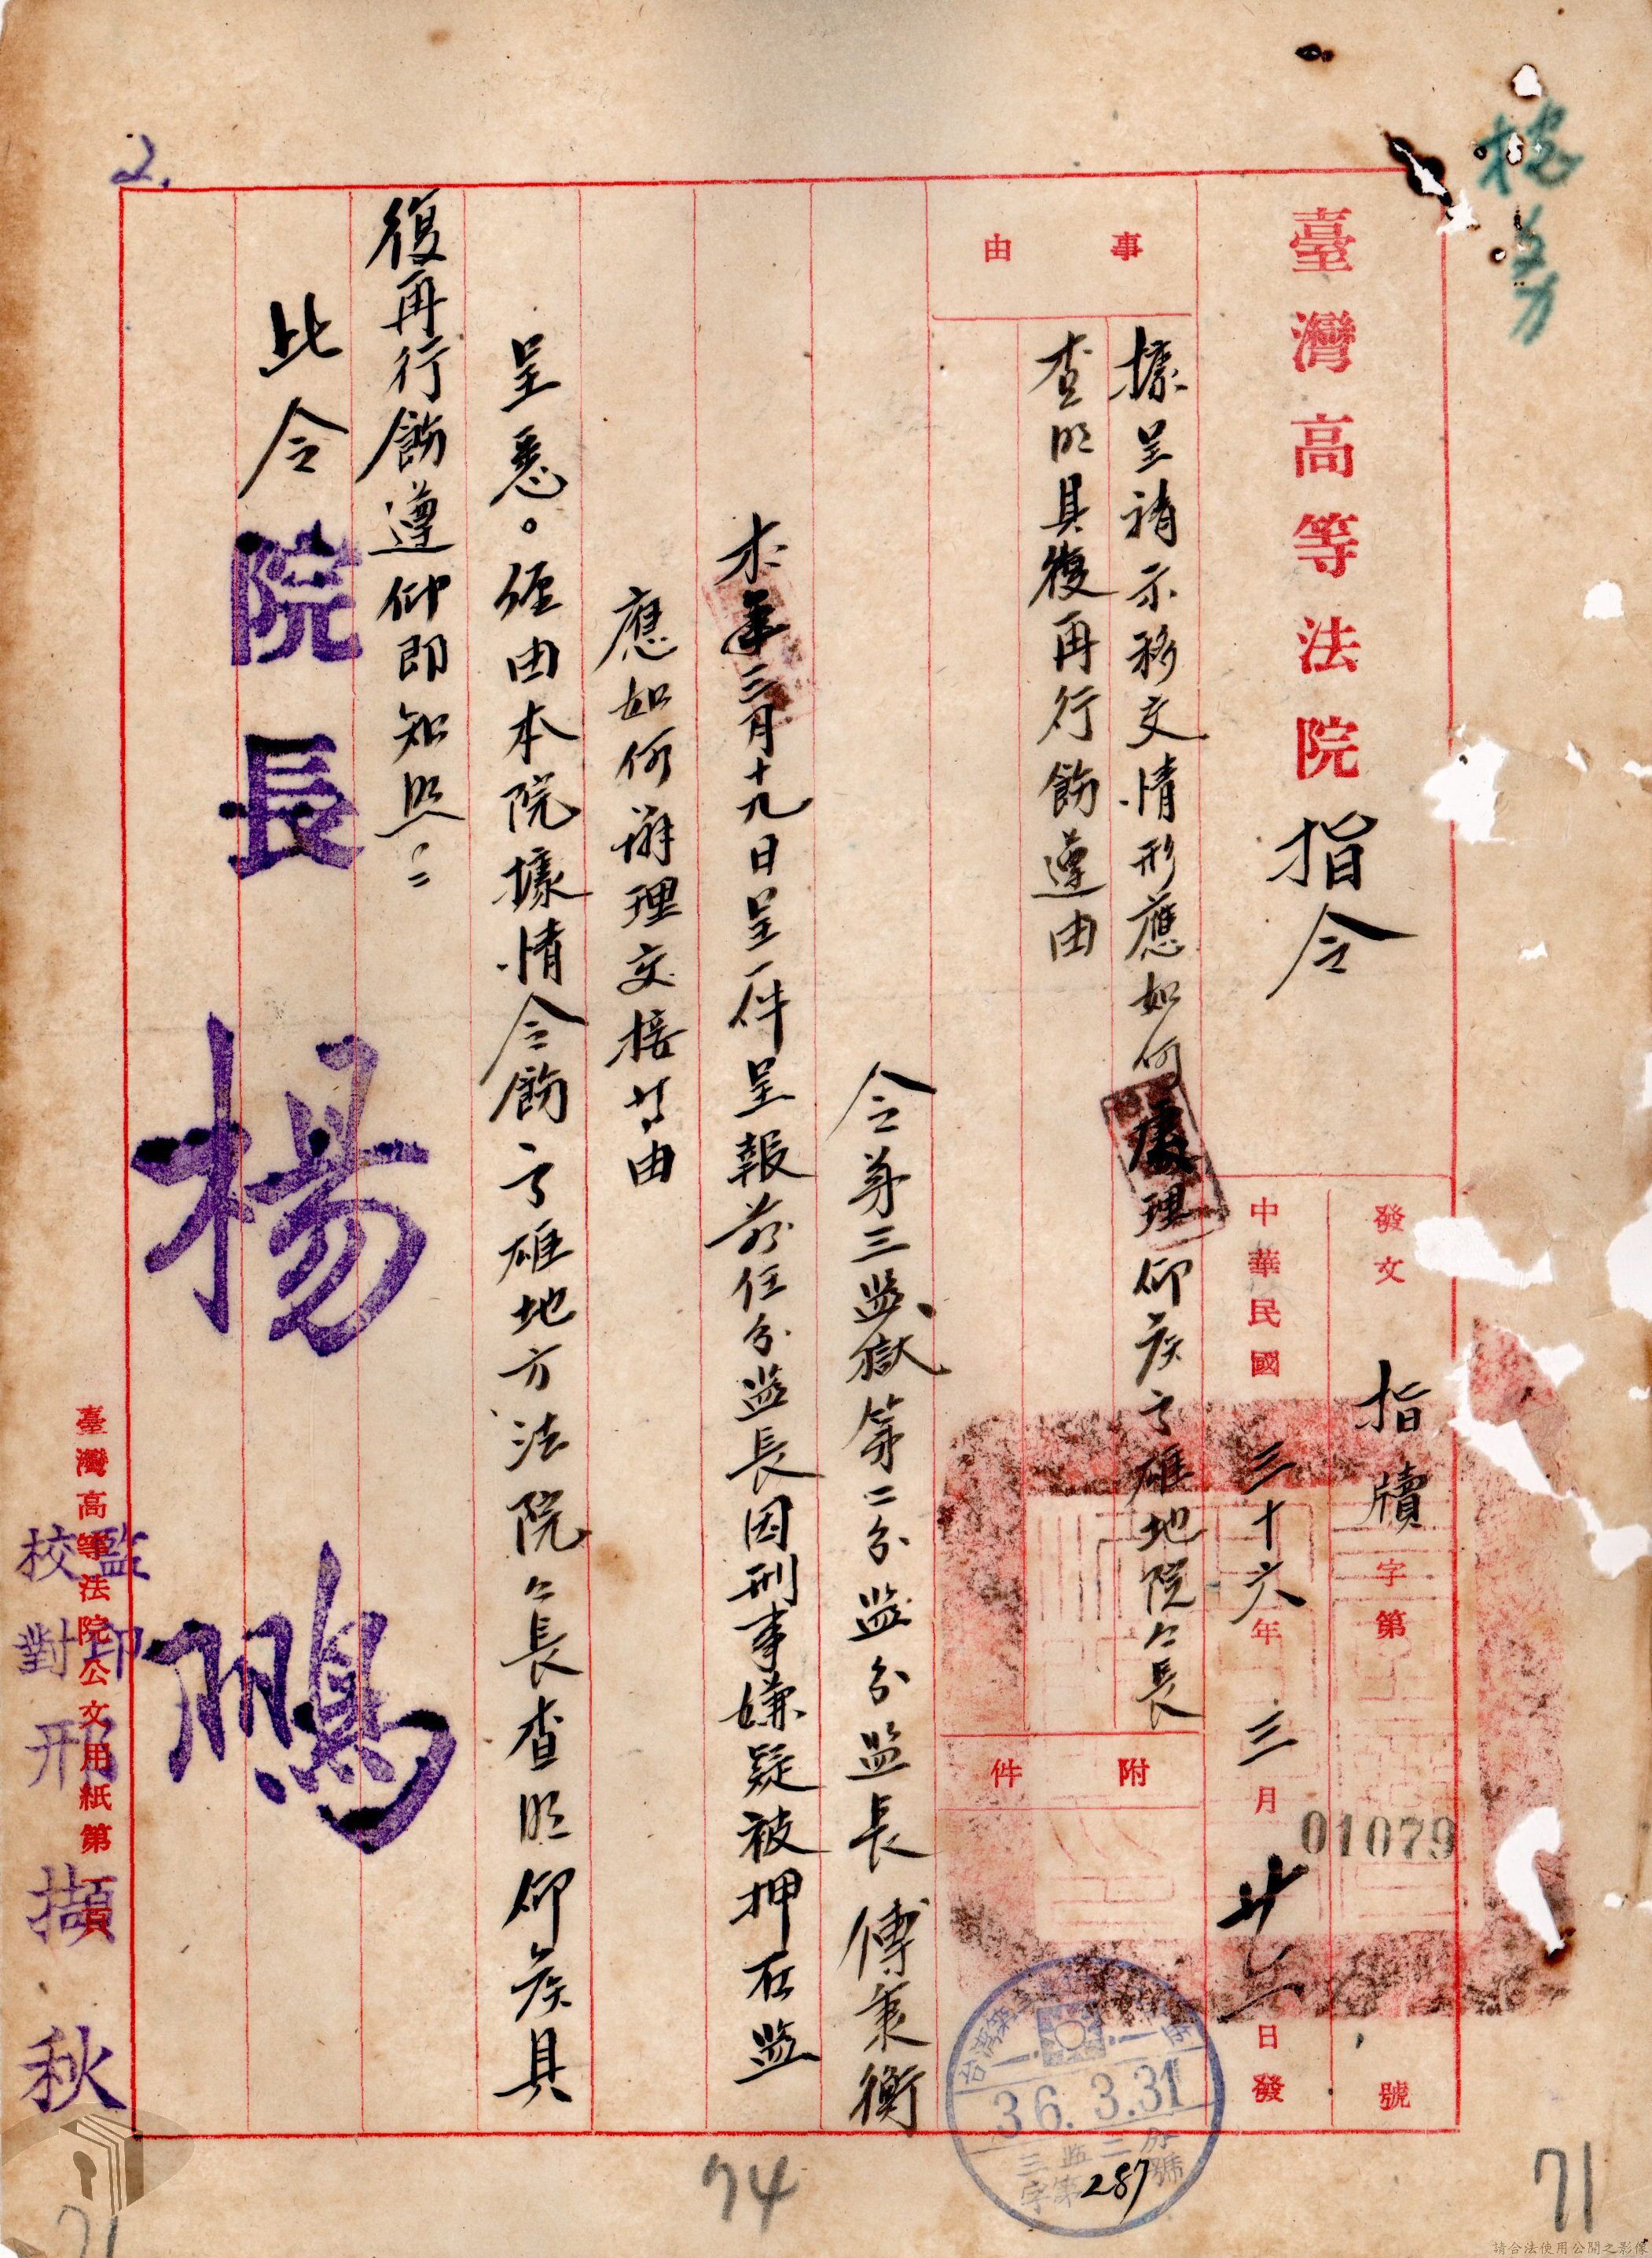 臺灣高等法院指令
發文 指牘字第01079號
中華民國三十六年三月廿 日發
事由
據呈請示移交情形應如何處理仰候高雄地院々長
查明具復再行飭遵由
附件
令第三監獄第二分監分監長 傅秉衡
本年三月十九日呈一件呈報前任分監長因刑事嫌疑被押在監
應如何辦理交接等由
呈悉。經由本院據情令飭高雄地方法院々長查明仰候具
復再行飭遵仰即知照
此令
院長 楊鵬
監印
校對 邢擷秋
臺灣高等法院公文用紙第一頁
36.3.31
287
2.
74
71
71
請合法使用公開之影像